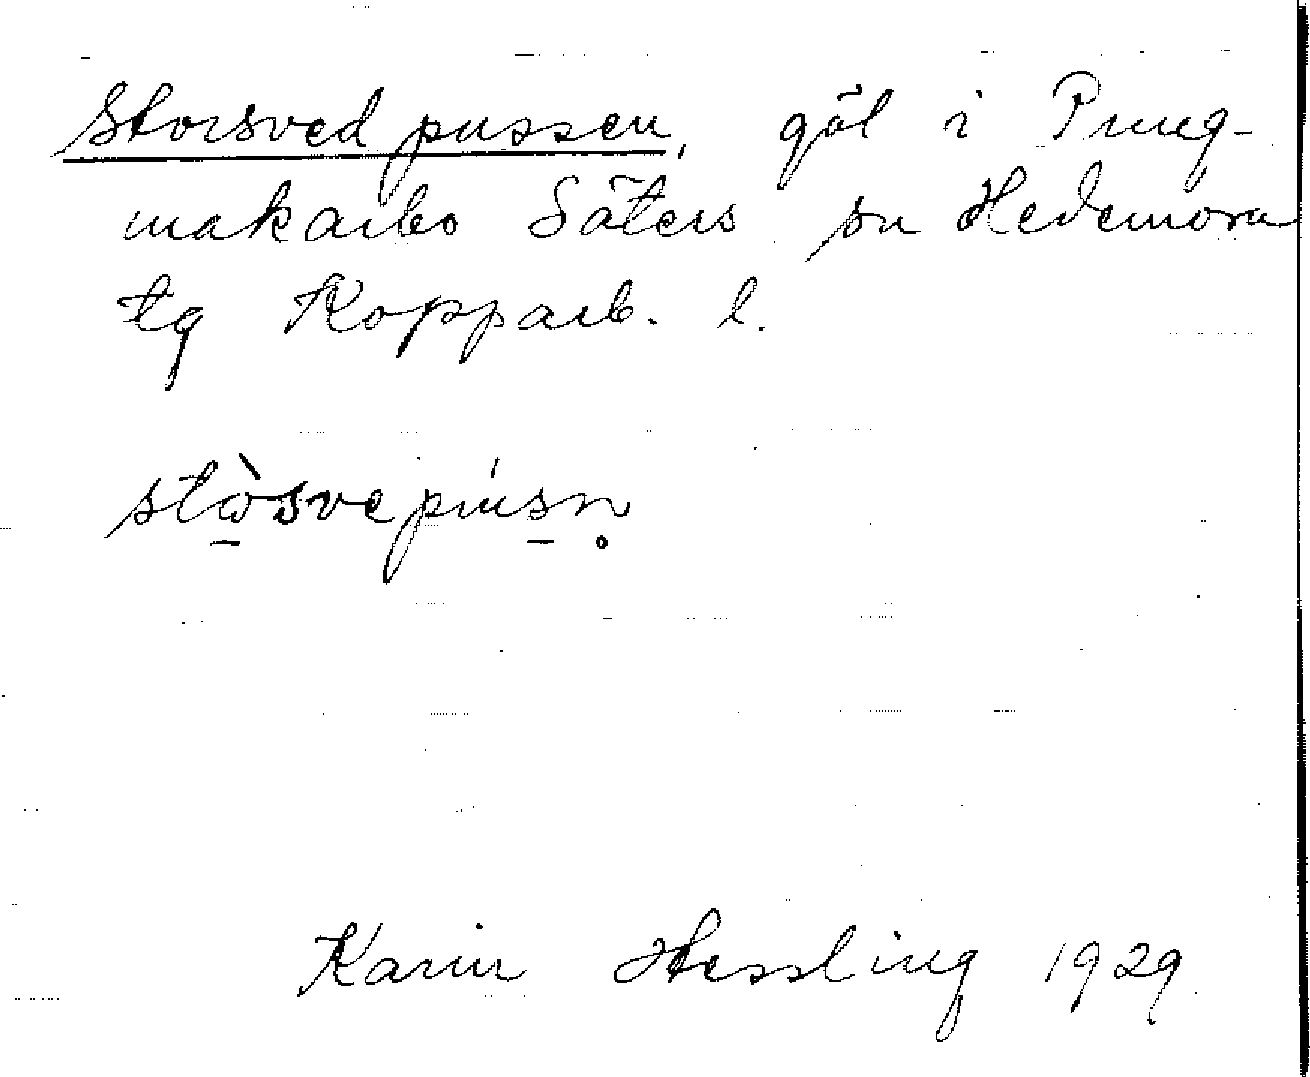 Storsvedpussen, göl i Pung-
makarbo Säters sn Hedemora
tg Kopparb. l.
stòsvepúsn̥
Karin Hessling 1929.